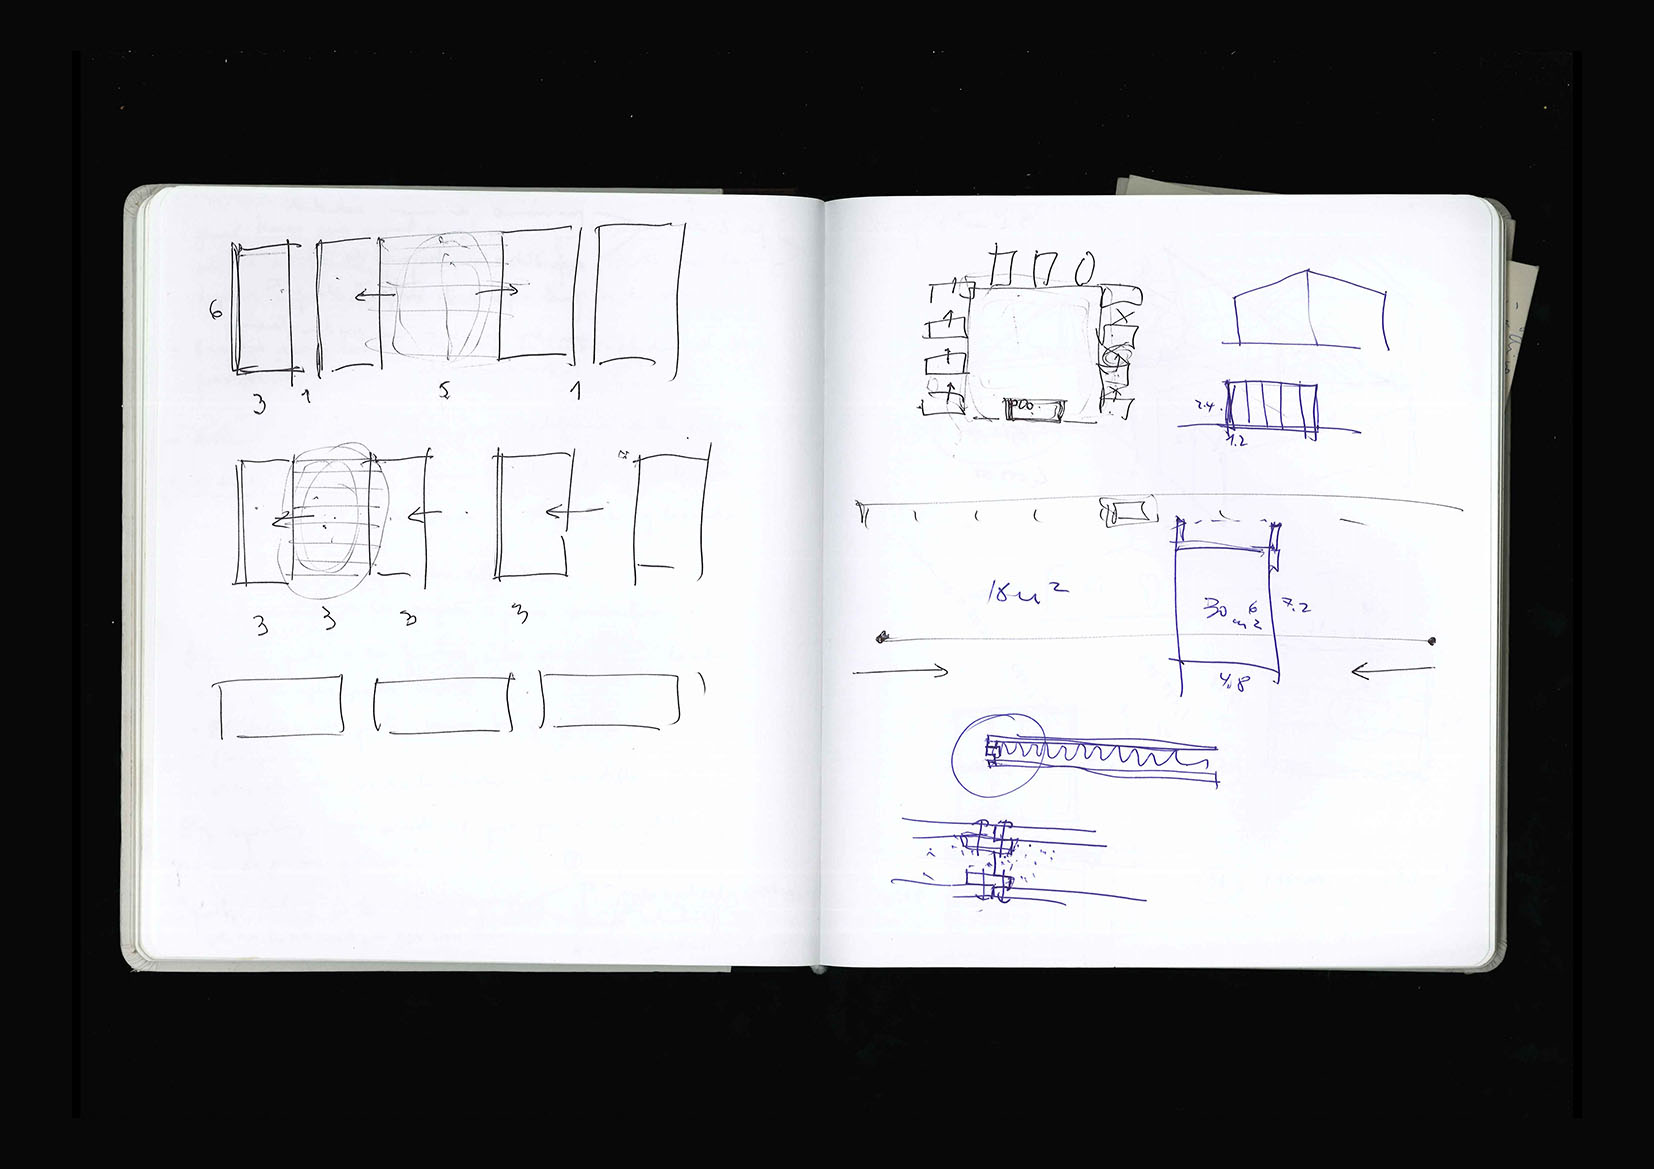 6
3 1 5 1
3 3 3 3
000
2.4
1.2
18m²
30 6
m2
7.2
4.8